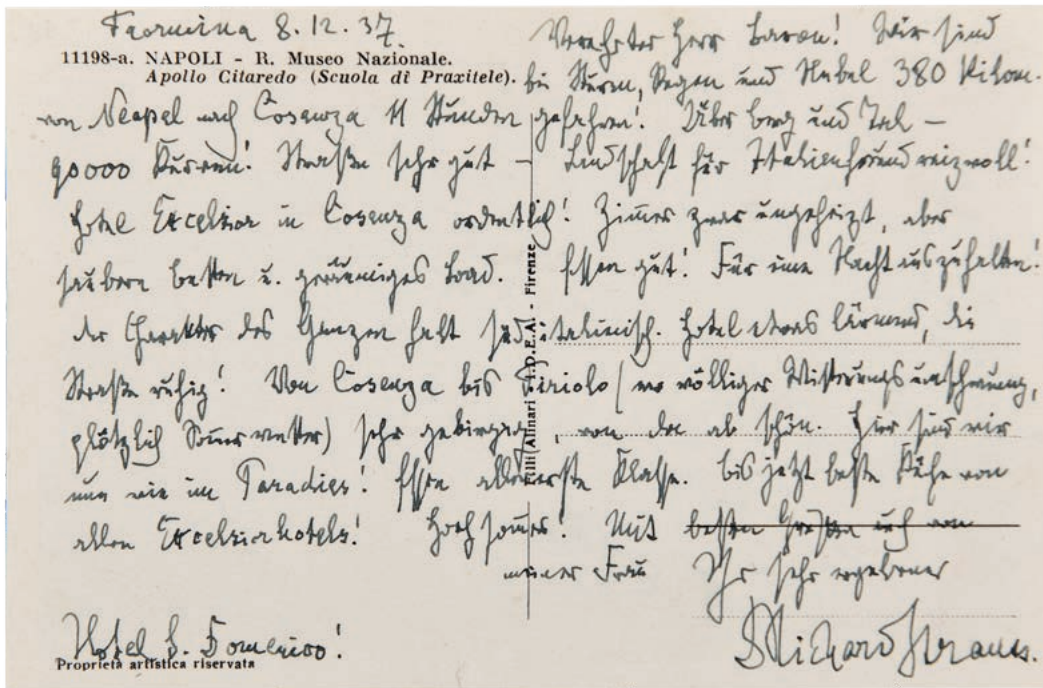 Taormina 8.12.37.
11198-a. NAPOLI - R. Museo Nazionale.
Apollo Citaredo (Scuola di Praxitele).
Verehrter Herr Baron! Wir sind
bei Sturm, Regen und Nebel 380 Kilom.
von Neapel nach Cosenza 11 Stunden gefahren! Über Berg und Tal –
90000 Kurven! Straßen sehr gut – Landschaft für Italienfreund reizvoll!
Hotel Excelsior in Cosenza ordentlich! Zimmer zwar ungeheizt, aber
saubere Betten u. geräumiges Bad. Essen gut! Für eine Nacht auszuhalten!
der Charakter des Ganzen halt süditalienisch. Hotel etwas lärmend, die
Straße ruhig! Von Cosenza bis Tiriolo (wo völliger Witterungsumschwung,
plötzlich Sommerwetter) sehr gebirgig, von da ab schön. Hier sind wir
nun wie im Paradies! Essen allererste Klasse. bis jetzt beste Küche von
allen Excelsiorhotels! Hochsommer! Mit besten Grüßen auch von
meiner Frau Ihr sehr ergebener
Hotel S. Domenico!
DrRichardStrauss.
Proprietà artistica riservata
Flli Alinari - I.D.E.A. - Firenze